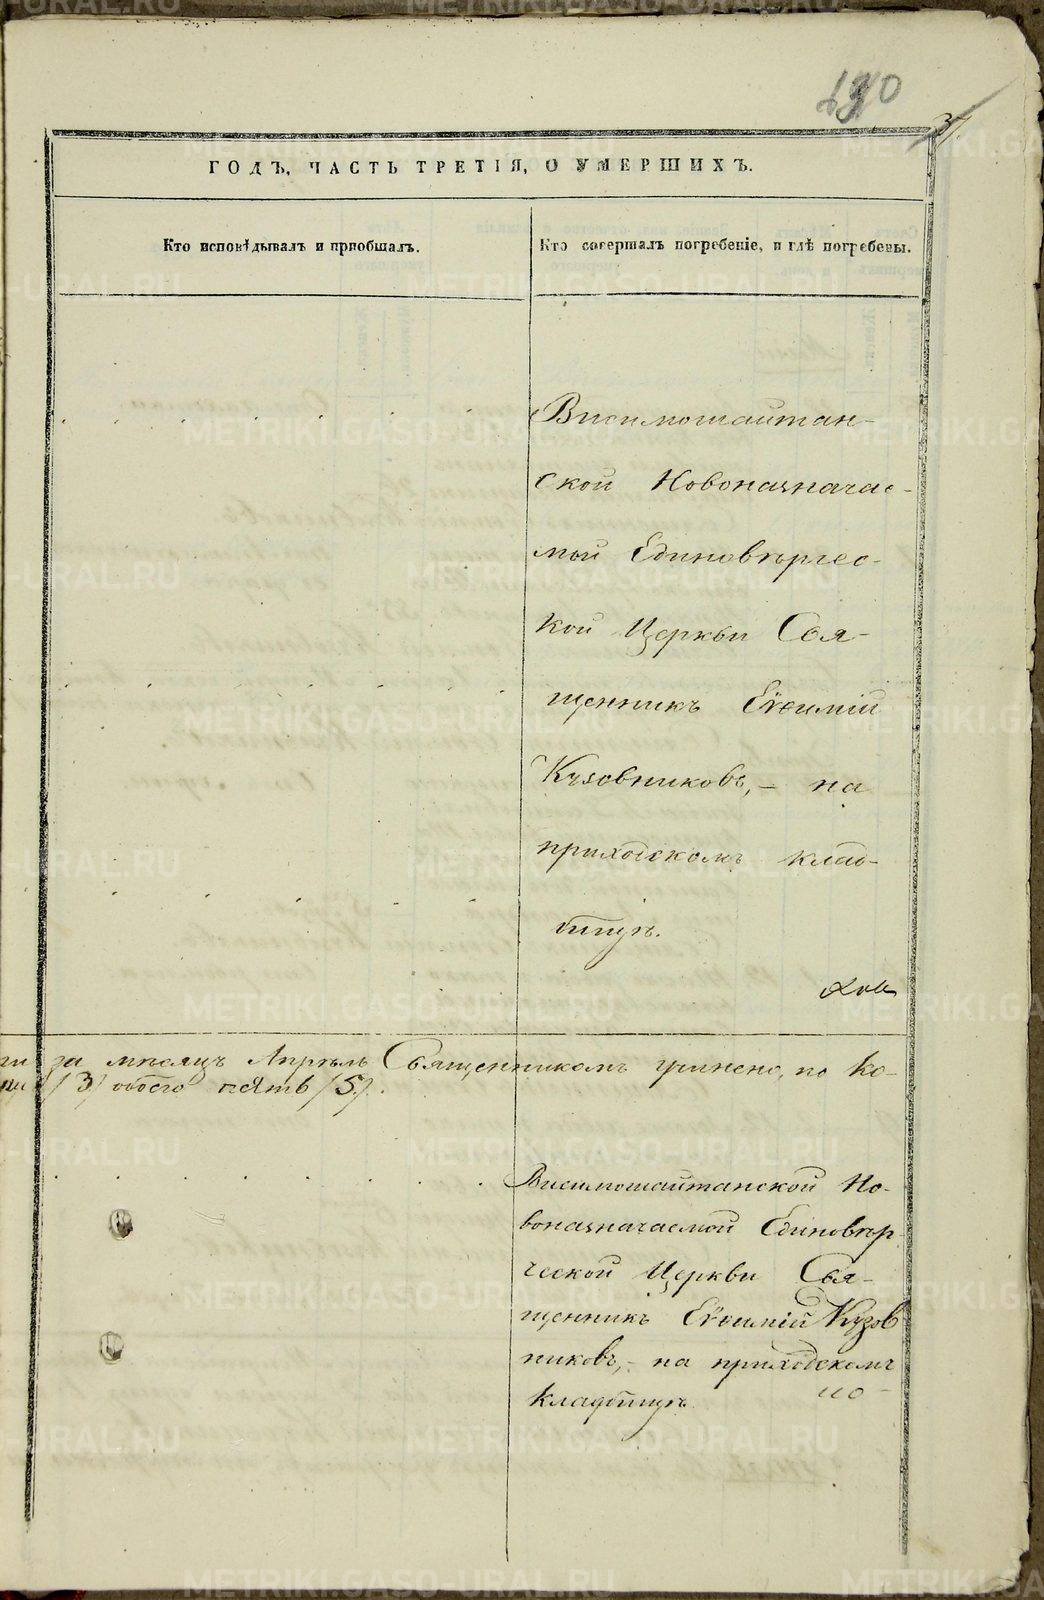 190
37.
ГОДЪ, ЧАСТЬ ТРЕТІЯ, О УМЕРШИХЪ.
Кто исповѣдывалъ и пріобщалъ.
Кто совершалъ погребеніе, и гдѣ погребены.
Висимошайтан-
ской Новоназначае-
мой Единовѣрчес-
кой Церкви Свя-
щенникъ Евѳимій
Кузовниковъ, - на
приходскомъ клад-
бищѣ.
за мѣсяцъ Апрѣль Священникомъ учинено, по ко-
/3/ обоего пять /5/.
Висимошайтанской Но-
воназначаемой Единовѣр-
ческой Церкви Свя-
щенникъ Евѳимій Кузов
никовъ, - на приходскомъ
кладбищѣ.
но-
METRIKI.GASO-URAL.RU